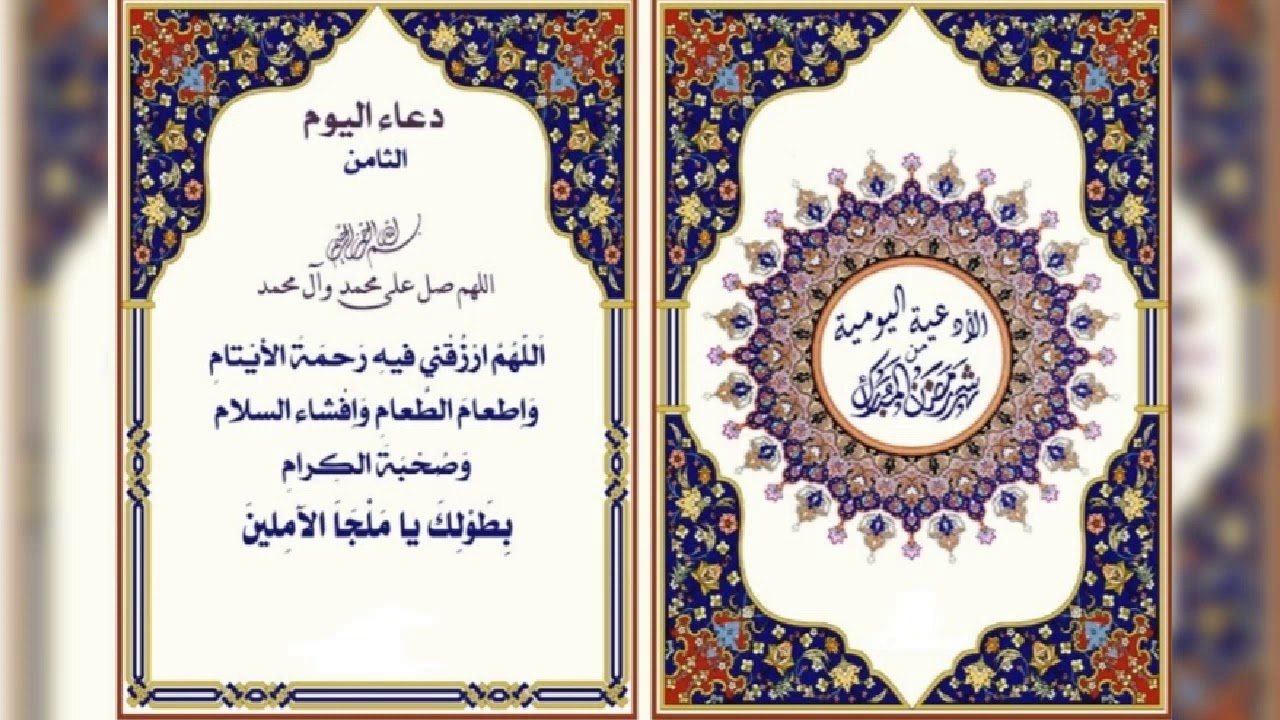 الأدعية اليومية
من
شهر رمضان المبارك
دعاء اليوم
الثامن
بسم الله الرحمن الرحيم
اللهم صل على محمد وآل محمد
اَللّهُمَّ ارْزُقْني فيهِ رَحمَةَ الأَيْتامِ
وَاِطعامَ الطَّعامِ وَاِفْشاء السلام
وَصُحْبَةَ الكِرامِ
بِطَوْلِكَ يا مَلْجَاَ الآمِلينَ